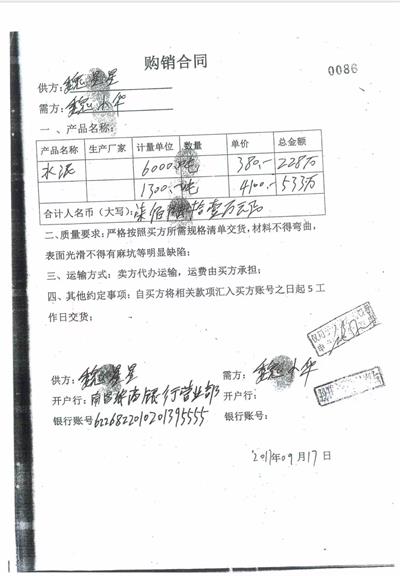 购销合同
0086
供方：魏星星
需方：魏小华
一、产品名称：
产品名称 生产厂家 计量单位 数量 单价 总金额
水泥 6000 吨 380.- 228万
1300.- 吨 4100.- 533万
合计人名币（大写）：柒佰陆拾壹万元正
二、质量要求：严格按照买方所需规格清单交货，材料不得弯曲，
表面光滑不得有麻坑等明显缺陷；
三、运输方式：卖方代办运输，运费由买方承担；
四、其他约定事项：自买方将相关款项汇入买方账号之日起5工
作日交货；
供方：魏星星 需方：魏小华
开户行：银行营业部 开户行：
银行账号：6226822010201395555 银行账号：
2017年09月17日